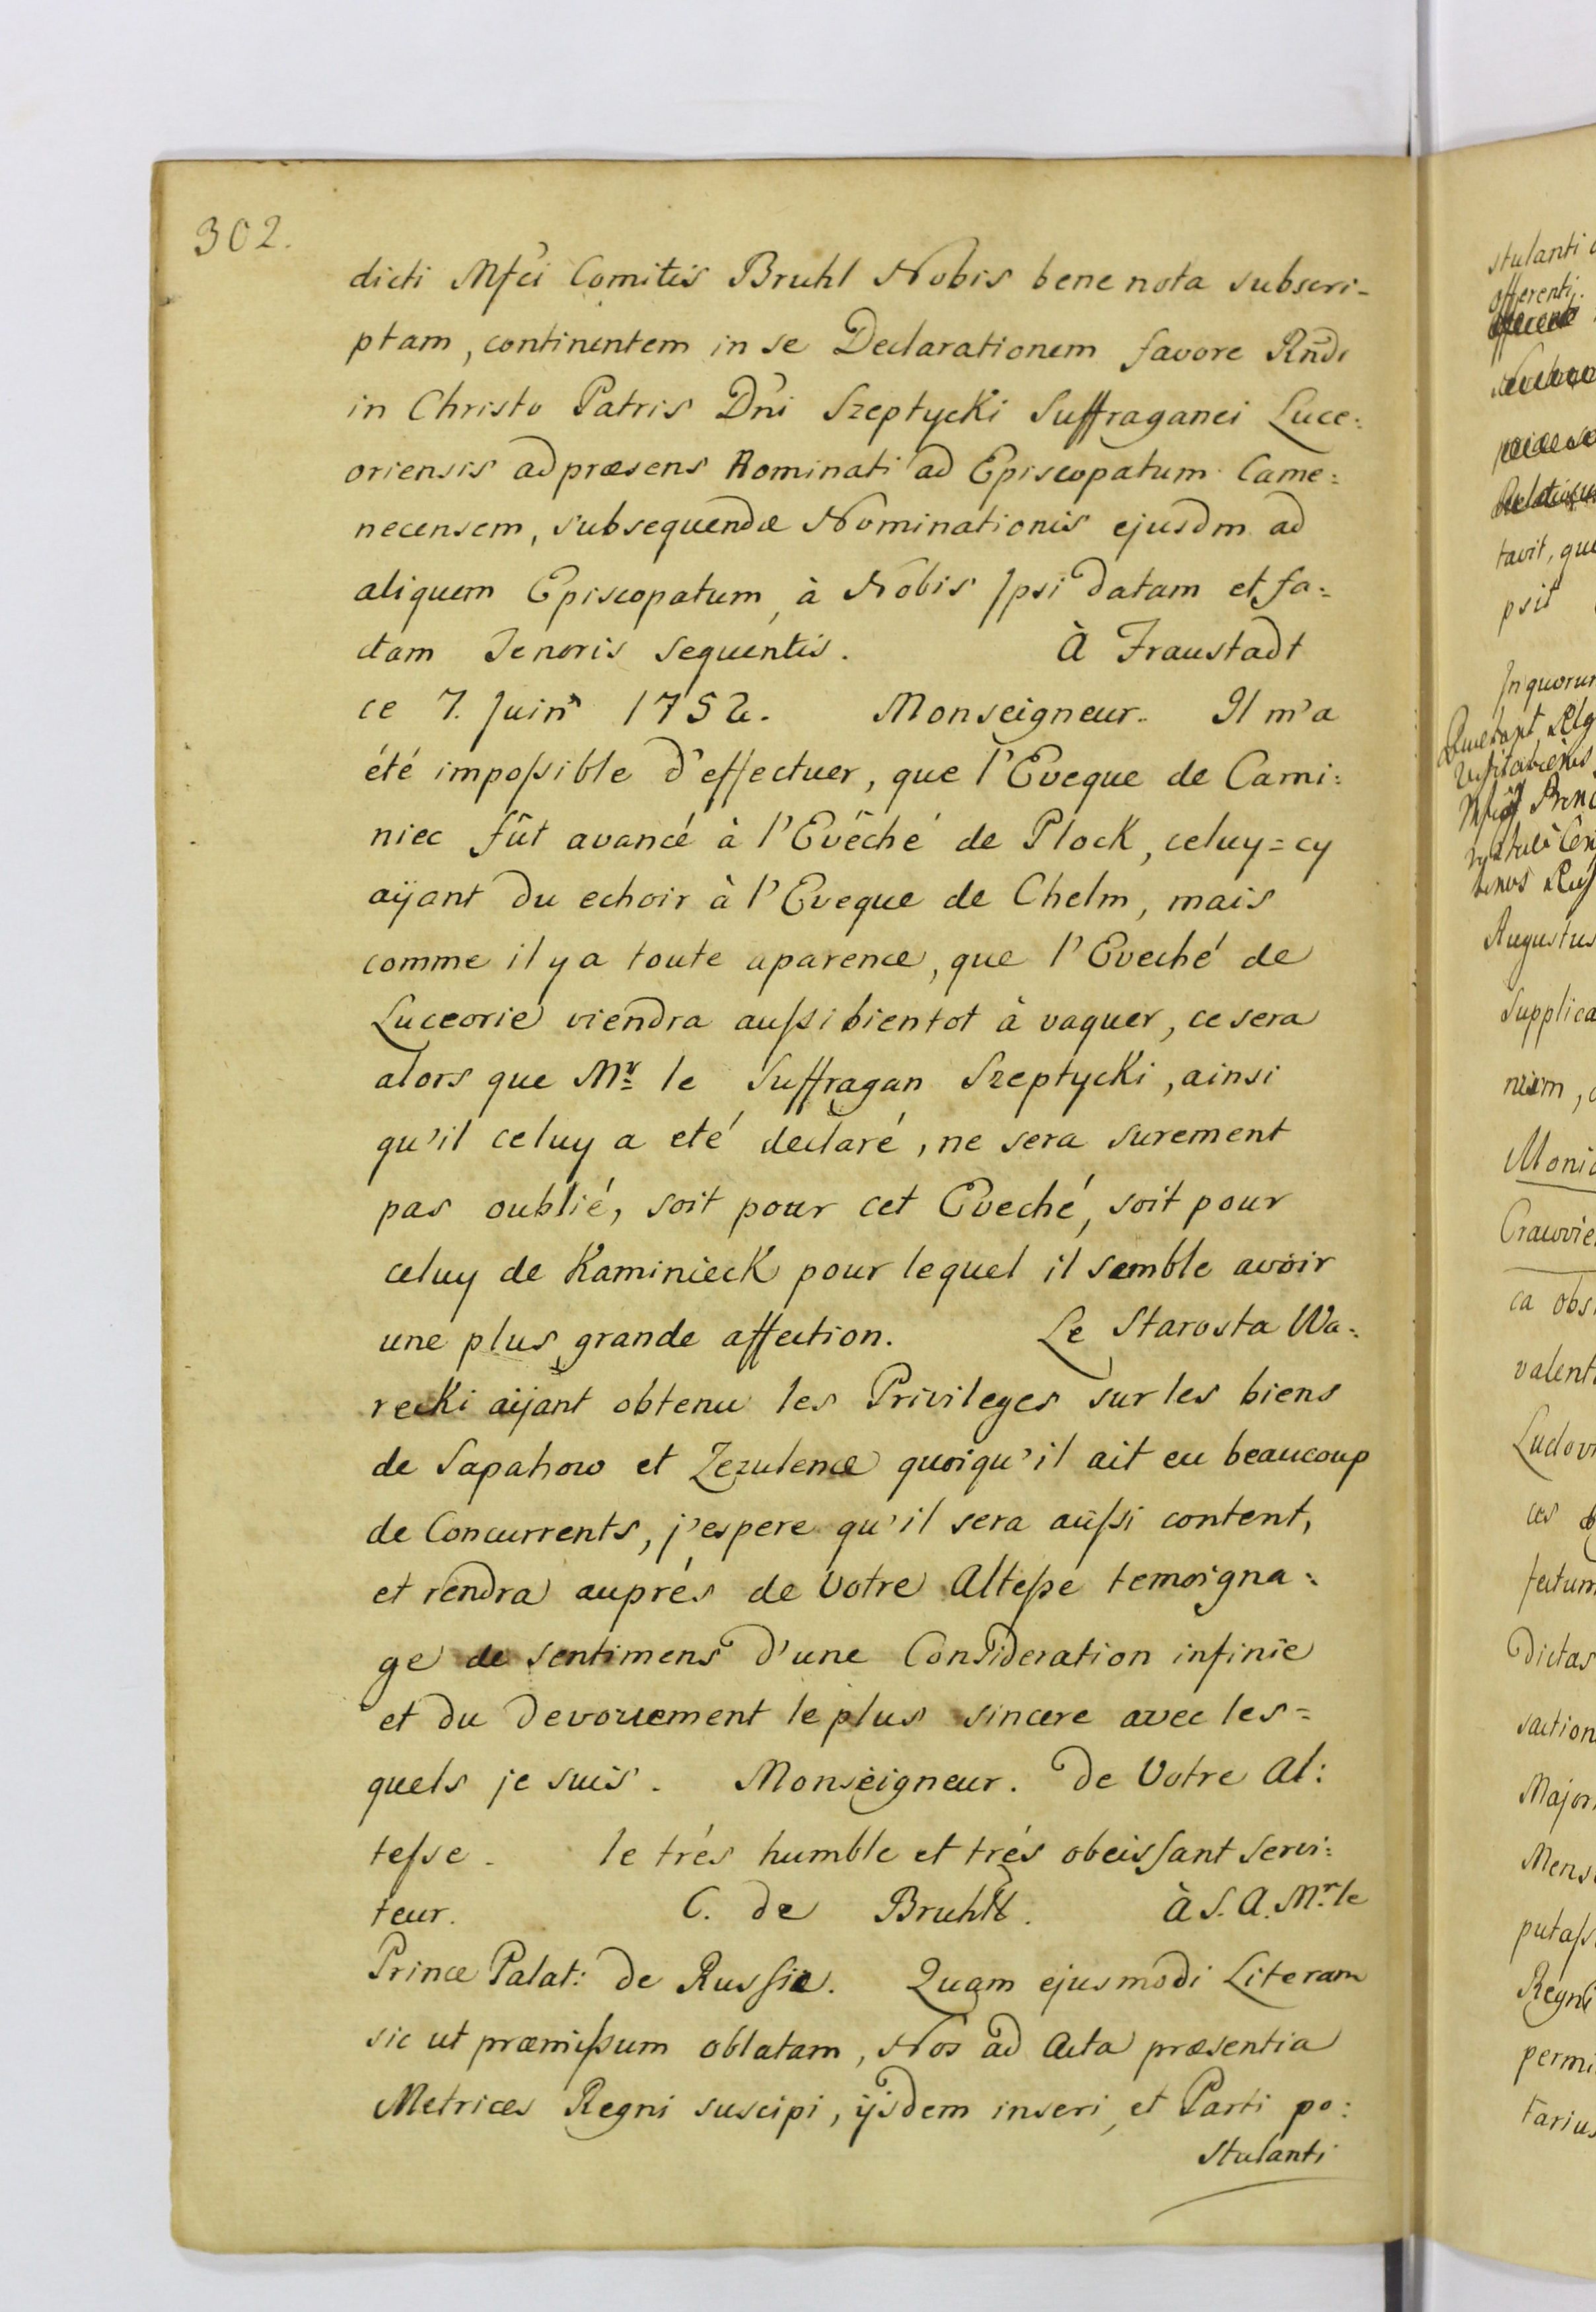 302.
dicti Mfci Comitis Bruhl Nobis bene nota subscri-
ptam, continentem in se Declarationem favore Rndi
in Christo Patris Dni Szeptycki Suffraganei Luce:
oriensis ad præsens Nominati ad Episcopatum Came:
necensem, subsequendæ Nominationis ejusdm ad
aliquem Episcopatum, à Nobis Jpsi datam et fa:
ctam Tenoris sequentis. À Fraustadt
ce 7. Juin 1752. Monseigneur. Il m'a
été impossible d'effectuer, que l'Eveque de Cami:
niec fût avancé à l'Evêché de Plock, celuy=cy
aÿant du echoir à l'Eveque de Chelm, mais
comme il y a toute aparence, que l'Eveché de
Luceorie viendra aussi bientot à vaquer, ce sera
alors que Mr le Suffragan Szeptycki, ainsi
qu'il celuy a eté declaré, ne sera surement
pas oublié, soit pour cet Eveché, soit pour
celuy de Kaminieck pour lequel il semble avoir
une plus grande affection. Le Starosta Wa:
recki aÿant obtenu les Privileges sur les biens
de Sapahow et Zezulence quoiqu'il ait eu beaucoup
de Concurrents, j'espere qu'il sera aussi content,
et rendra auprés de Votre Altesse temoigna:
ge de sentimens d'une Consideration infinie
et du devouement le plus sincere avec les=
quels je suis. Monseigneur. de Votre Al:
tesse. le trés humble et trés obeissant Servi:
teur. C. de Bruhl. À S. A. Mr. le
Prince Palat: de Russie. Quam ejusmodi Literam
sic ut præmissum oblatam, Nos ad Acta præsentia
Metrices Regni suscipi, ijsdem inseri, et Parti po:
stulanti
stulanti
offerenti.
tavit, que
psit
Jn quorum
Augustus
Supplica
nem,
Monic
Cracovie
ca obs
valent
Ludovi
ces
fectum
Dictas
saction
Major
Mens
putass
Regni
permi
tarius